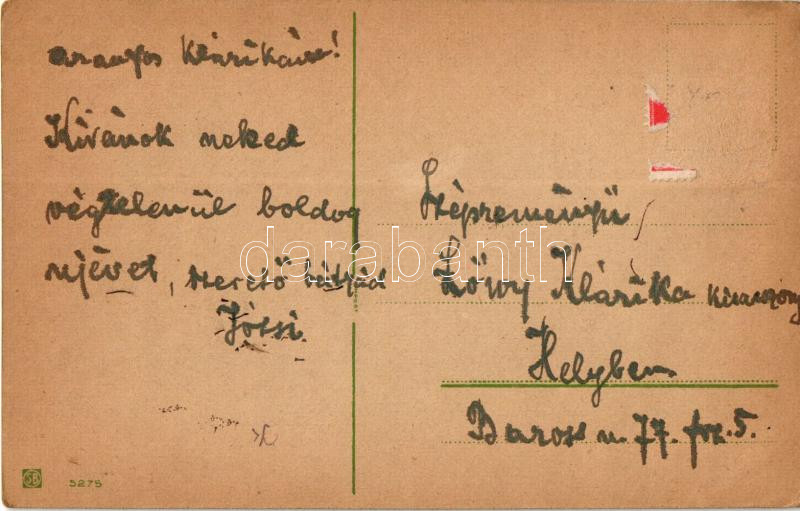 aranyos Klárikám!
Kívánok neked
végtelenül boldog
ujévet, szerető bátyád
Józsi
Szépreményü
Lőwy Klárika kisasszony
Helyben
Baross u. 77. fsz. 5.
darabanth
5275